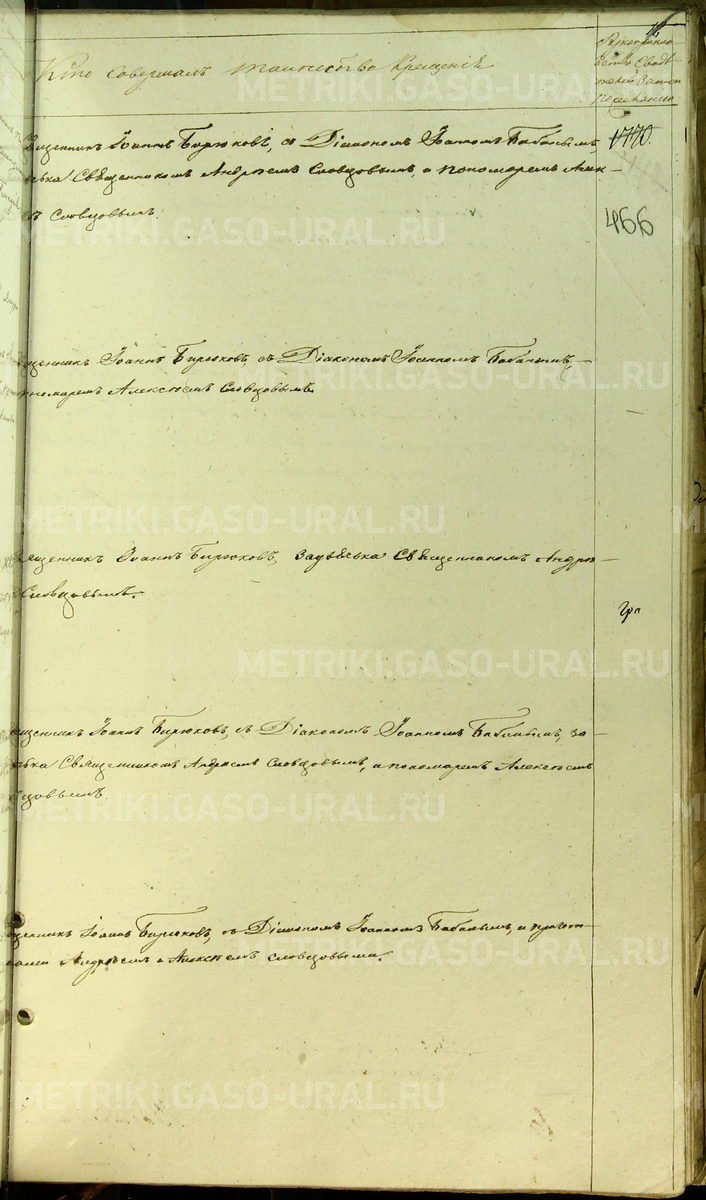 Кто совершалъ таинство крещенія
Рукоприкла
дство Свидѣ
телей запис
по желанію
священникъ Іоаннъ Бирюковъ, съ Діакономъ Іоанномъ Бабинымъ
1770.
Священникомъ Андреемъ Словцовымъ, и пономаремъ Алек-
Словцовымъ.
466
Іоаннъ Бирюковъ, съ Діакономъ Іоанномъ Бабинымъ,
пономаремъ Алексѣемъ Словцовымъ.
Іоаннъ Бирюковъ, Священникомъ Андре-
Словцовымъ.
Іоаннъ Бирюковъ, съ Діакономъ Іоанномъ Бабинымъ, за-
Священникомъ Андреемъ Словцовымъ, и пономаремъ Алексѣемъ
Іоаннъ Бирюковъ, съ Діакономъ Іоанномъ Бабинымъ, и
Андреемъ и Алексѣемъ Словцовыми.
METRIKI.GASO-URAL.RU